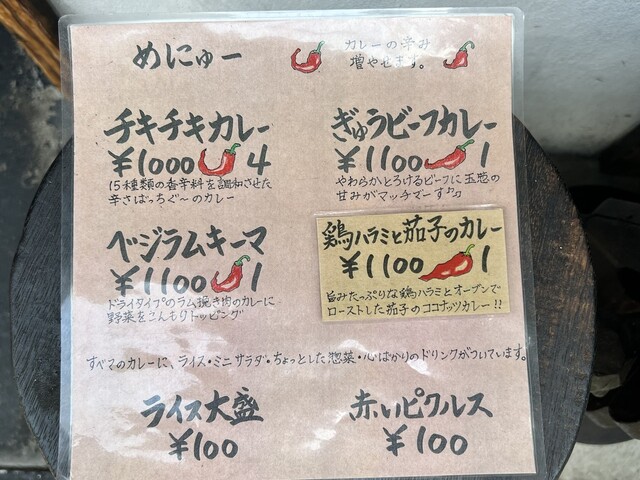 めにゅー
カレーの辛み
増やせます。
チキチキカレー
¥1000 4
15種類の香辛料を調和させた
辛さばっちぐ〜のカレー
ぎゅうビーフカレー
¥1100 1
やわらかとろけるビーフに玉葱の
甘みがマッチマーす♪
ベジラムキーマ
¥1100 1
ドライタイプのラム挽き肉のカレーに
野菜をこんもりトッピング
鶏ハラミと茄子のカレー
¥1100 1
旨みたっぷりな鶏ハラミとオーブンで
ローストした茄子のココナッツカレー!!
すべてのカレーに、ライス・ミニサラダ・ちょっとした惣菜・心ばかりのドリンクがついています。
ライス大盛
¥100
赤いピクルス
¥100